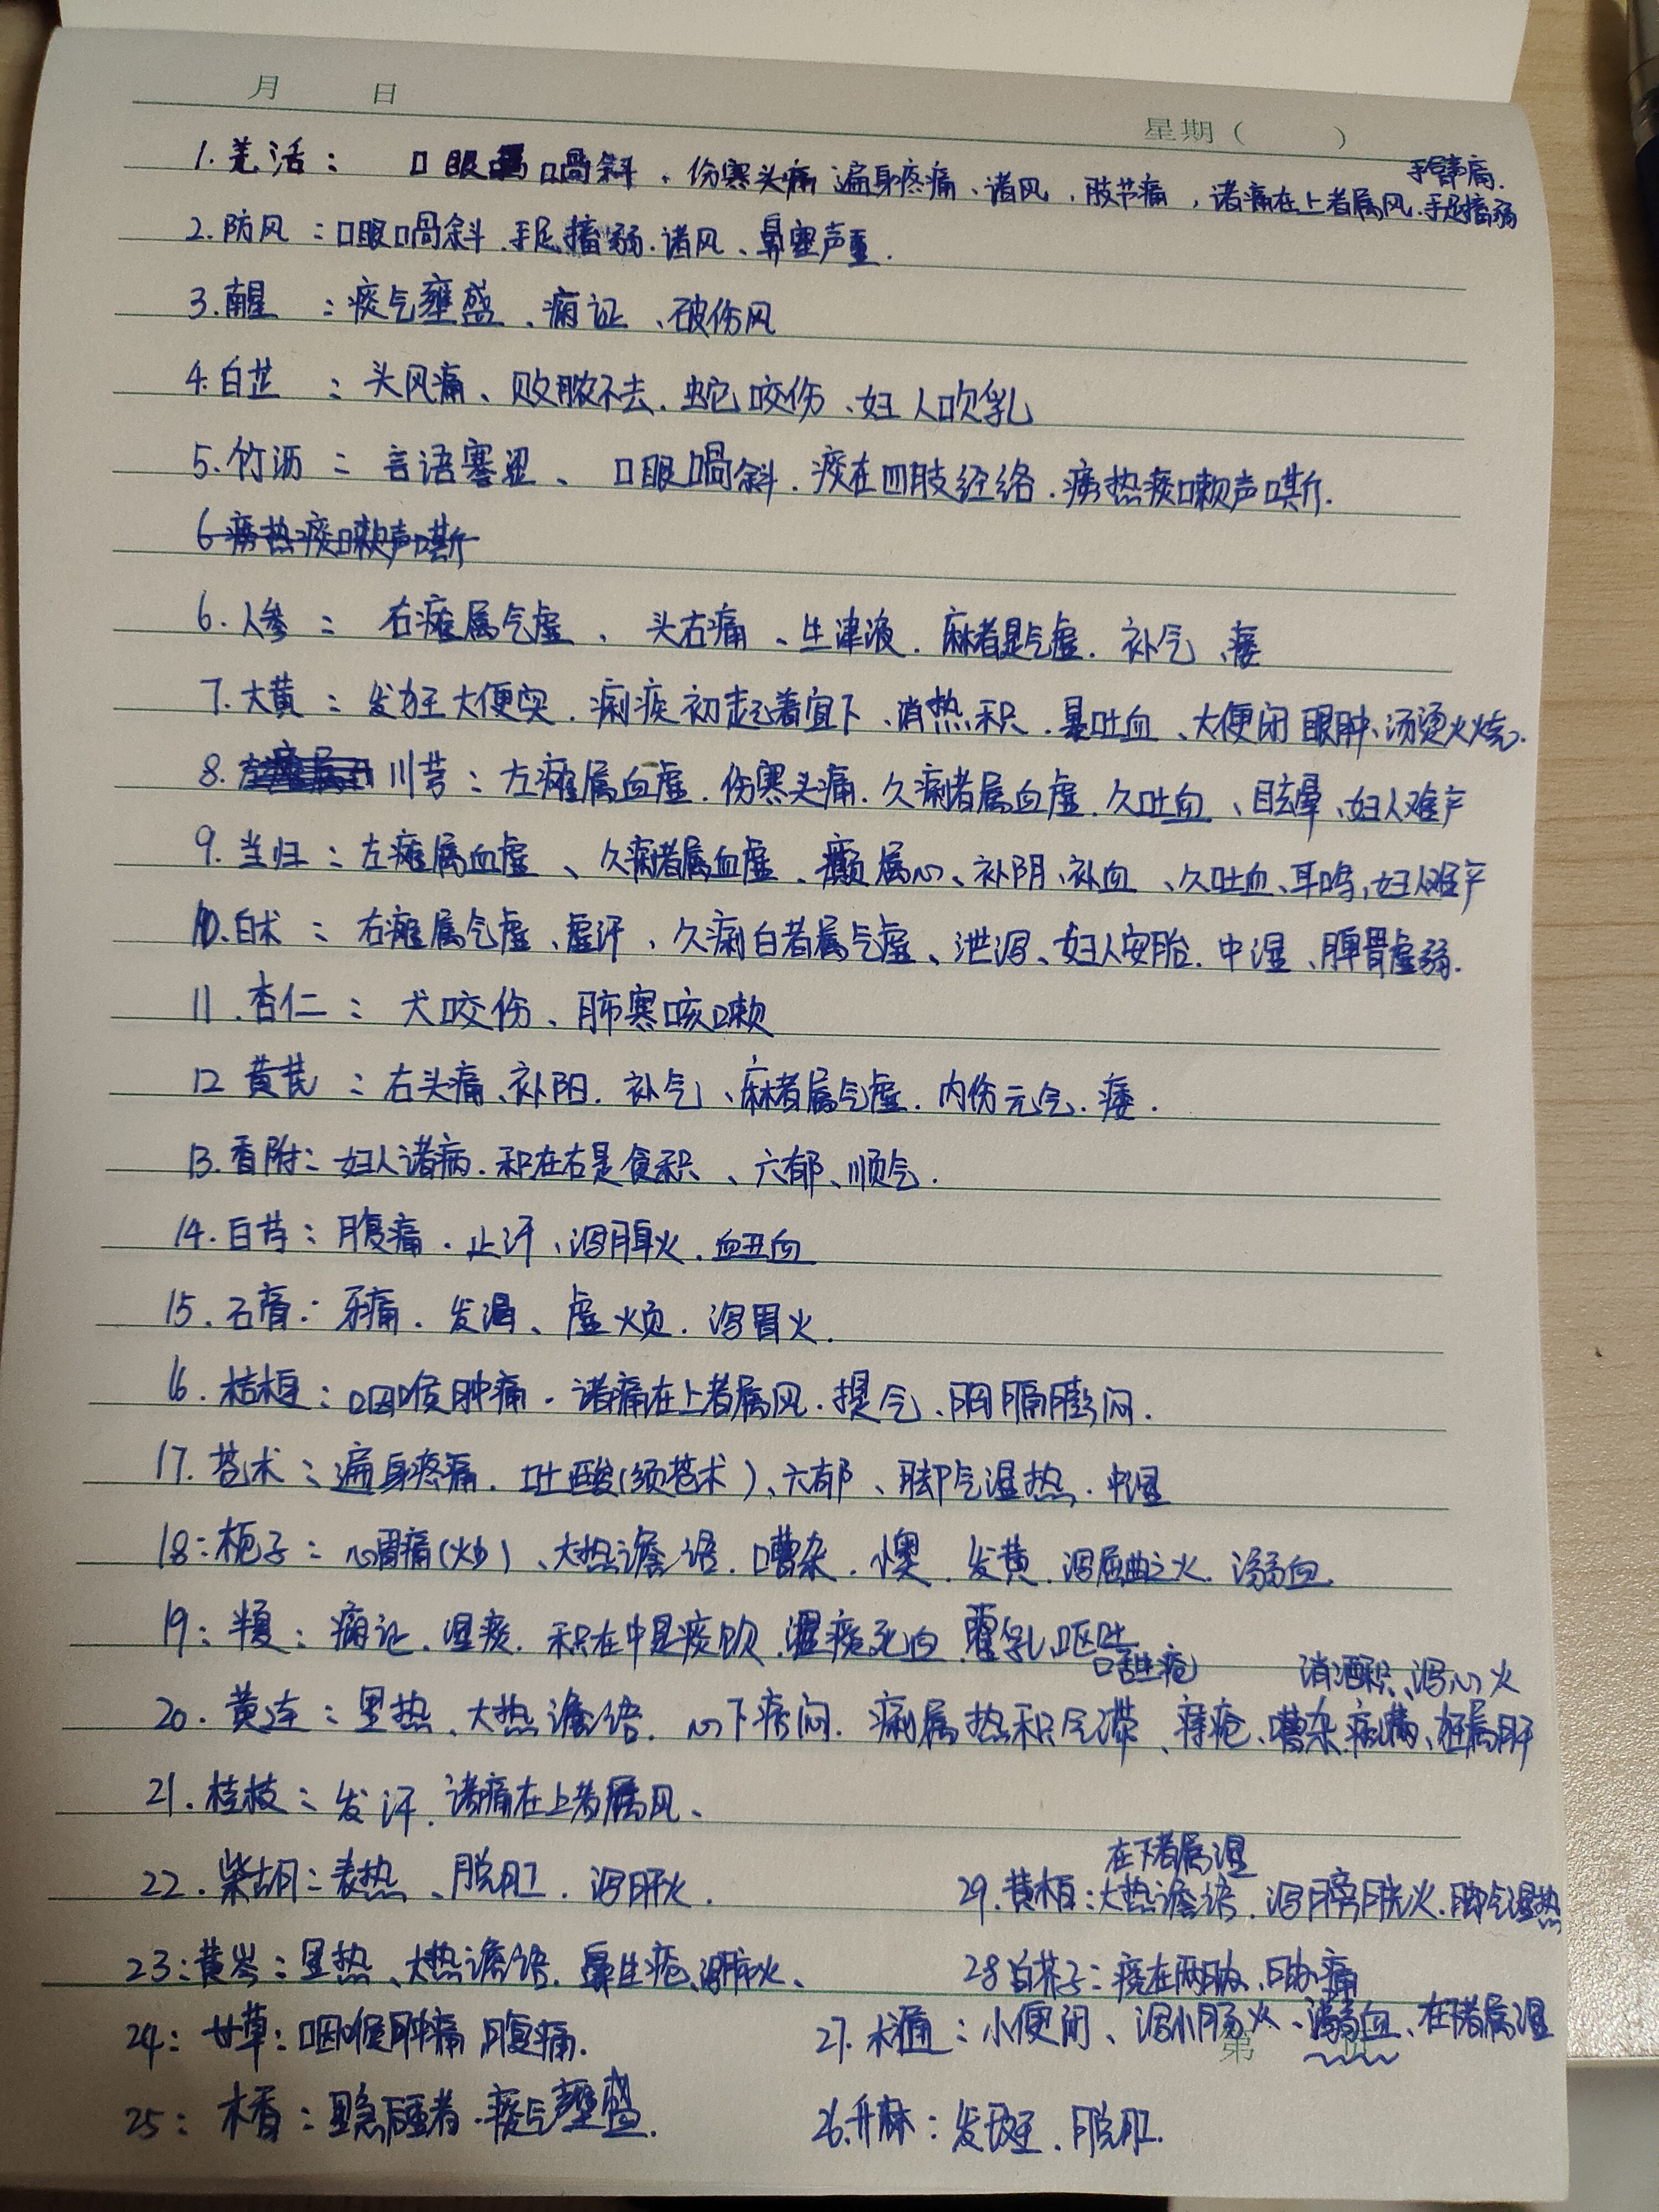 月 日
星期( )
手臂痛.
1.羌活: 口眼喎斜、伤寒头痛 遍身疼痛、诸风、肢节痛,诸痛在上者属风.手足搐弱
2.防风:口眼喎斜.手足搐弱.诸风、鼻塞声重.
3.南星:痰气壅盛、痫证、破伤风
4.白芷:头风痛、败脓不去.蛇咬伤、妇人吹乳
5.竹沥:言语蹇涩、口眼喎斜.痰在四肢经络.痨热痰嗽声嘶.
6 痨热痰嗽声嘶
6.人参:右瘫属气虚、头右痛、生津液.麻者是气虚.补气、痿
7.大黄:发狂大便实.痢疾初起者宜下、消热积.暴吐血、大便闭 眼肿、汤烫火烧.
8.川芎:左瘫属血虚.伤寒头痛.久痢者属血虚.久吐血、目眩晕、妇人难产
9.当归:左瘫属血虚、久痢者属血虚、癫属心、补阴、补血、久吐血、耳鸣,妇人难产
10.白术:右瘫属气虚、虚汗、久痢白者属气虚、泄泻、妇人安胎.中湿、脾胃虚弱.
11.杏仁:犬咬伤、肺寒咳嗽
12 黄芪:右头痛、补阳.补气、麻者属气虚.内伤元气.痿.
13.香附:妇人诸病.积在右是食积、六郁、顺气.
14.白芍:腹痛.止汗、泻脾火.衄血
15.石膏:牙痛.发渴、虚烦.泻胃火.
16.桔梗:咽喉肿痛.诸痛在上者属风.提气、胸膈膨闷.
17.苍术:遍身疼痛.吐酸(须苍术)、六郁、脚气湿热.中湿
18:栀子:心胃痛(炒)、大热谵语.嘈杂.懊.发黄.泻屈曲之火.溺血.
19:半夏:痫证.湿痰.积在中是痰饮.湿痰死血.霍乳呕吐
口舌生疮 消酒积、泻心火
20.黄连:里热、大热谵语.心下痞闷.痢属热积气滞、痔疮、嘈杂 痞满、狂属肝
21.桂枝:发汗.诸痛在上者属风、
在下者属湿
22.柴胡:表热、脱肛.泻肝火. 29.黄柏:大热谵语.泻膀胱火.脚气湿热
23:黄岑:里热、大热谵语.鼻生疮、泻肺火、 28 白芥子:痰在两胁、胁痛
24:甘草:咽喉肿痛 腹痛. 27.木通:小便闭、泻小肠火、溺血、在下者属湿
第 页
25:木香:里急后重者.痰气壅盛. 26.升麻:发斑.脱肛.